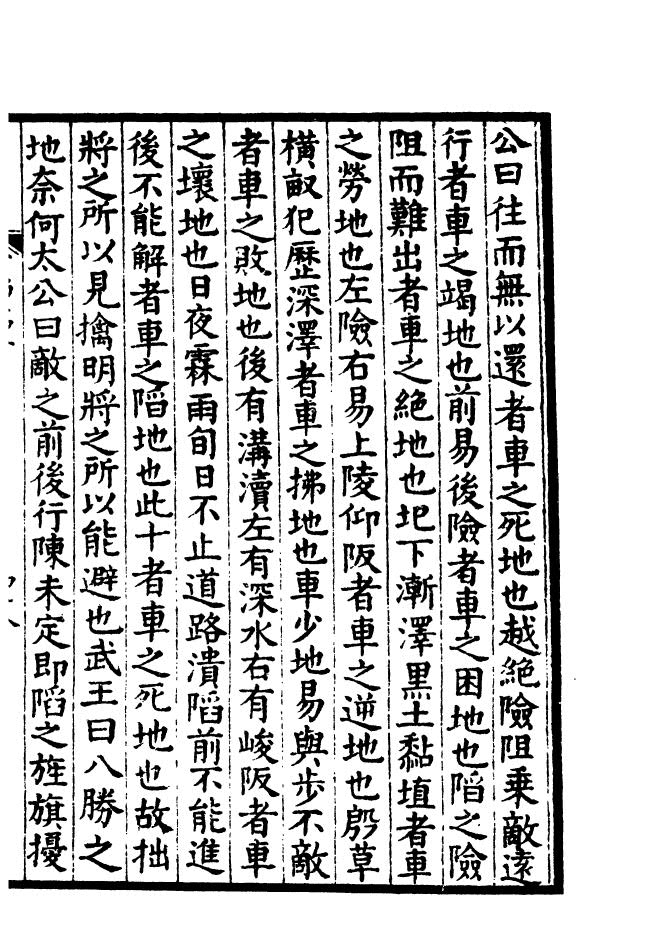 公曰往而無以還者車之死地也越絶險阻乗敵逺
行者車之竭地也前易後險者車之困地也陷之險
阻而難出者車之絶地也圯下漸澤黒土黏埴者車
之勞地也左險右易上陵仰阪者車之逆地也殷草
橫畝犯歷深澤者車之拂地也車少地易與歩不敵
者車之敗地也後有溝瀆左有深水右有峻阪者車
之壞地也日夜霖雨旬日不止道路潰陷前不能進
後不能解者車之陷地也此十者車之死地也故拙
將之所以見擒明將之所以能避也武王曰八勝之
地奈何太公曰敵之前後行陳未定即陷之旌旗擾